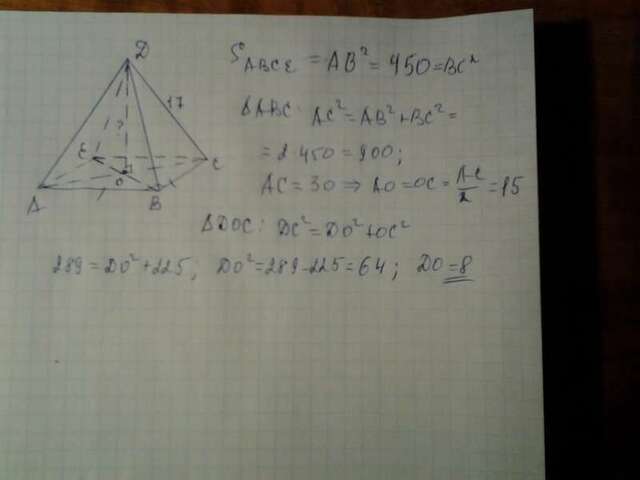 D
17
?
E
C
O
A
B
S_ABCE = AB² = 450 = BC²
ΔABC: AC² = AB² + BC² =
= 2·450 = 900;
AC = 30 ⇒ AO = OC = AC/2 = 15
ΔDOC: DC² = DO² + OC²
289 = DO² + 225; DO² = 289 - 225 = 64; DO = 8